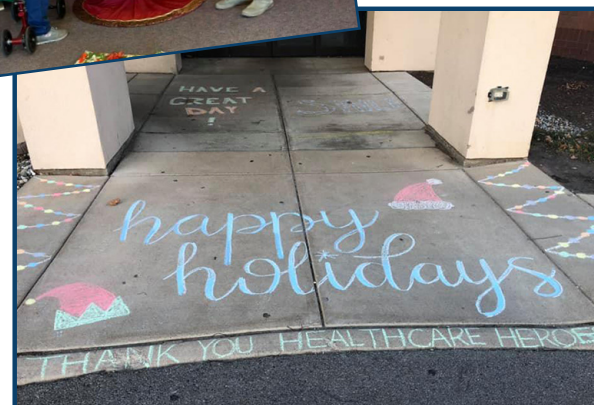 HAVE A
GREAT
DAY
!
happy
holidays
THANK YOU HEALTHCARE HEROES